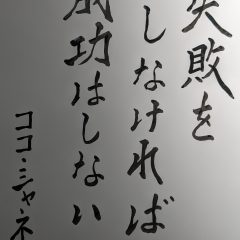 失敗を
しなければ
成功はしない
ココ・シャネ